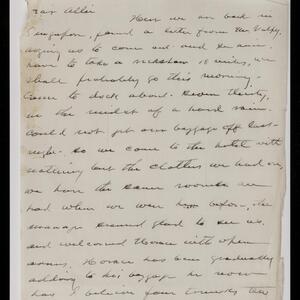 Dear Allie
Here we are back in
Singapore, found a letter from Mr Valpy,
urging us to come out and see him
have to take a rickshaw 18 miles, we
shall probably go this morning.
Came to dock about Seven thirty,
in the midst of a hard rain
could not get our baggage off last
night. So we came to the hotel with
nothing but the clothes we had on,
we have the same rooms we
had when we were here before, the
manager seemed glad to see us.
and welcomed Horace with open
arms. Horace has been gradually
adding to his baggage he now
has I believe four trunks the